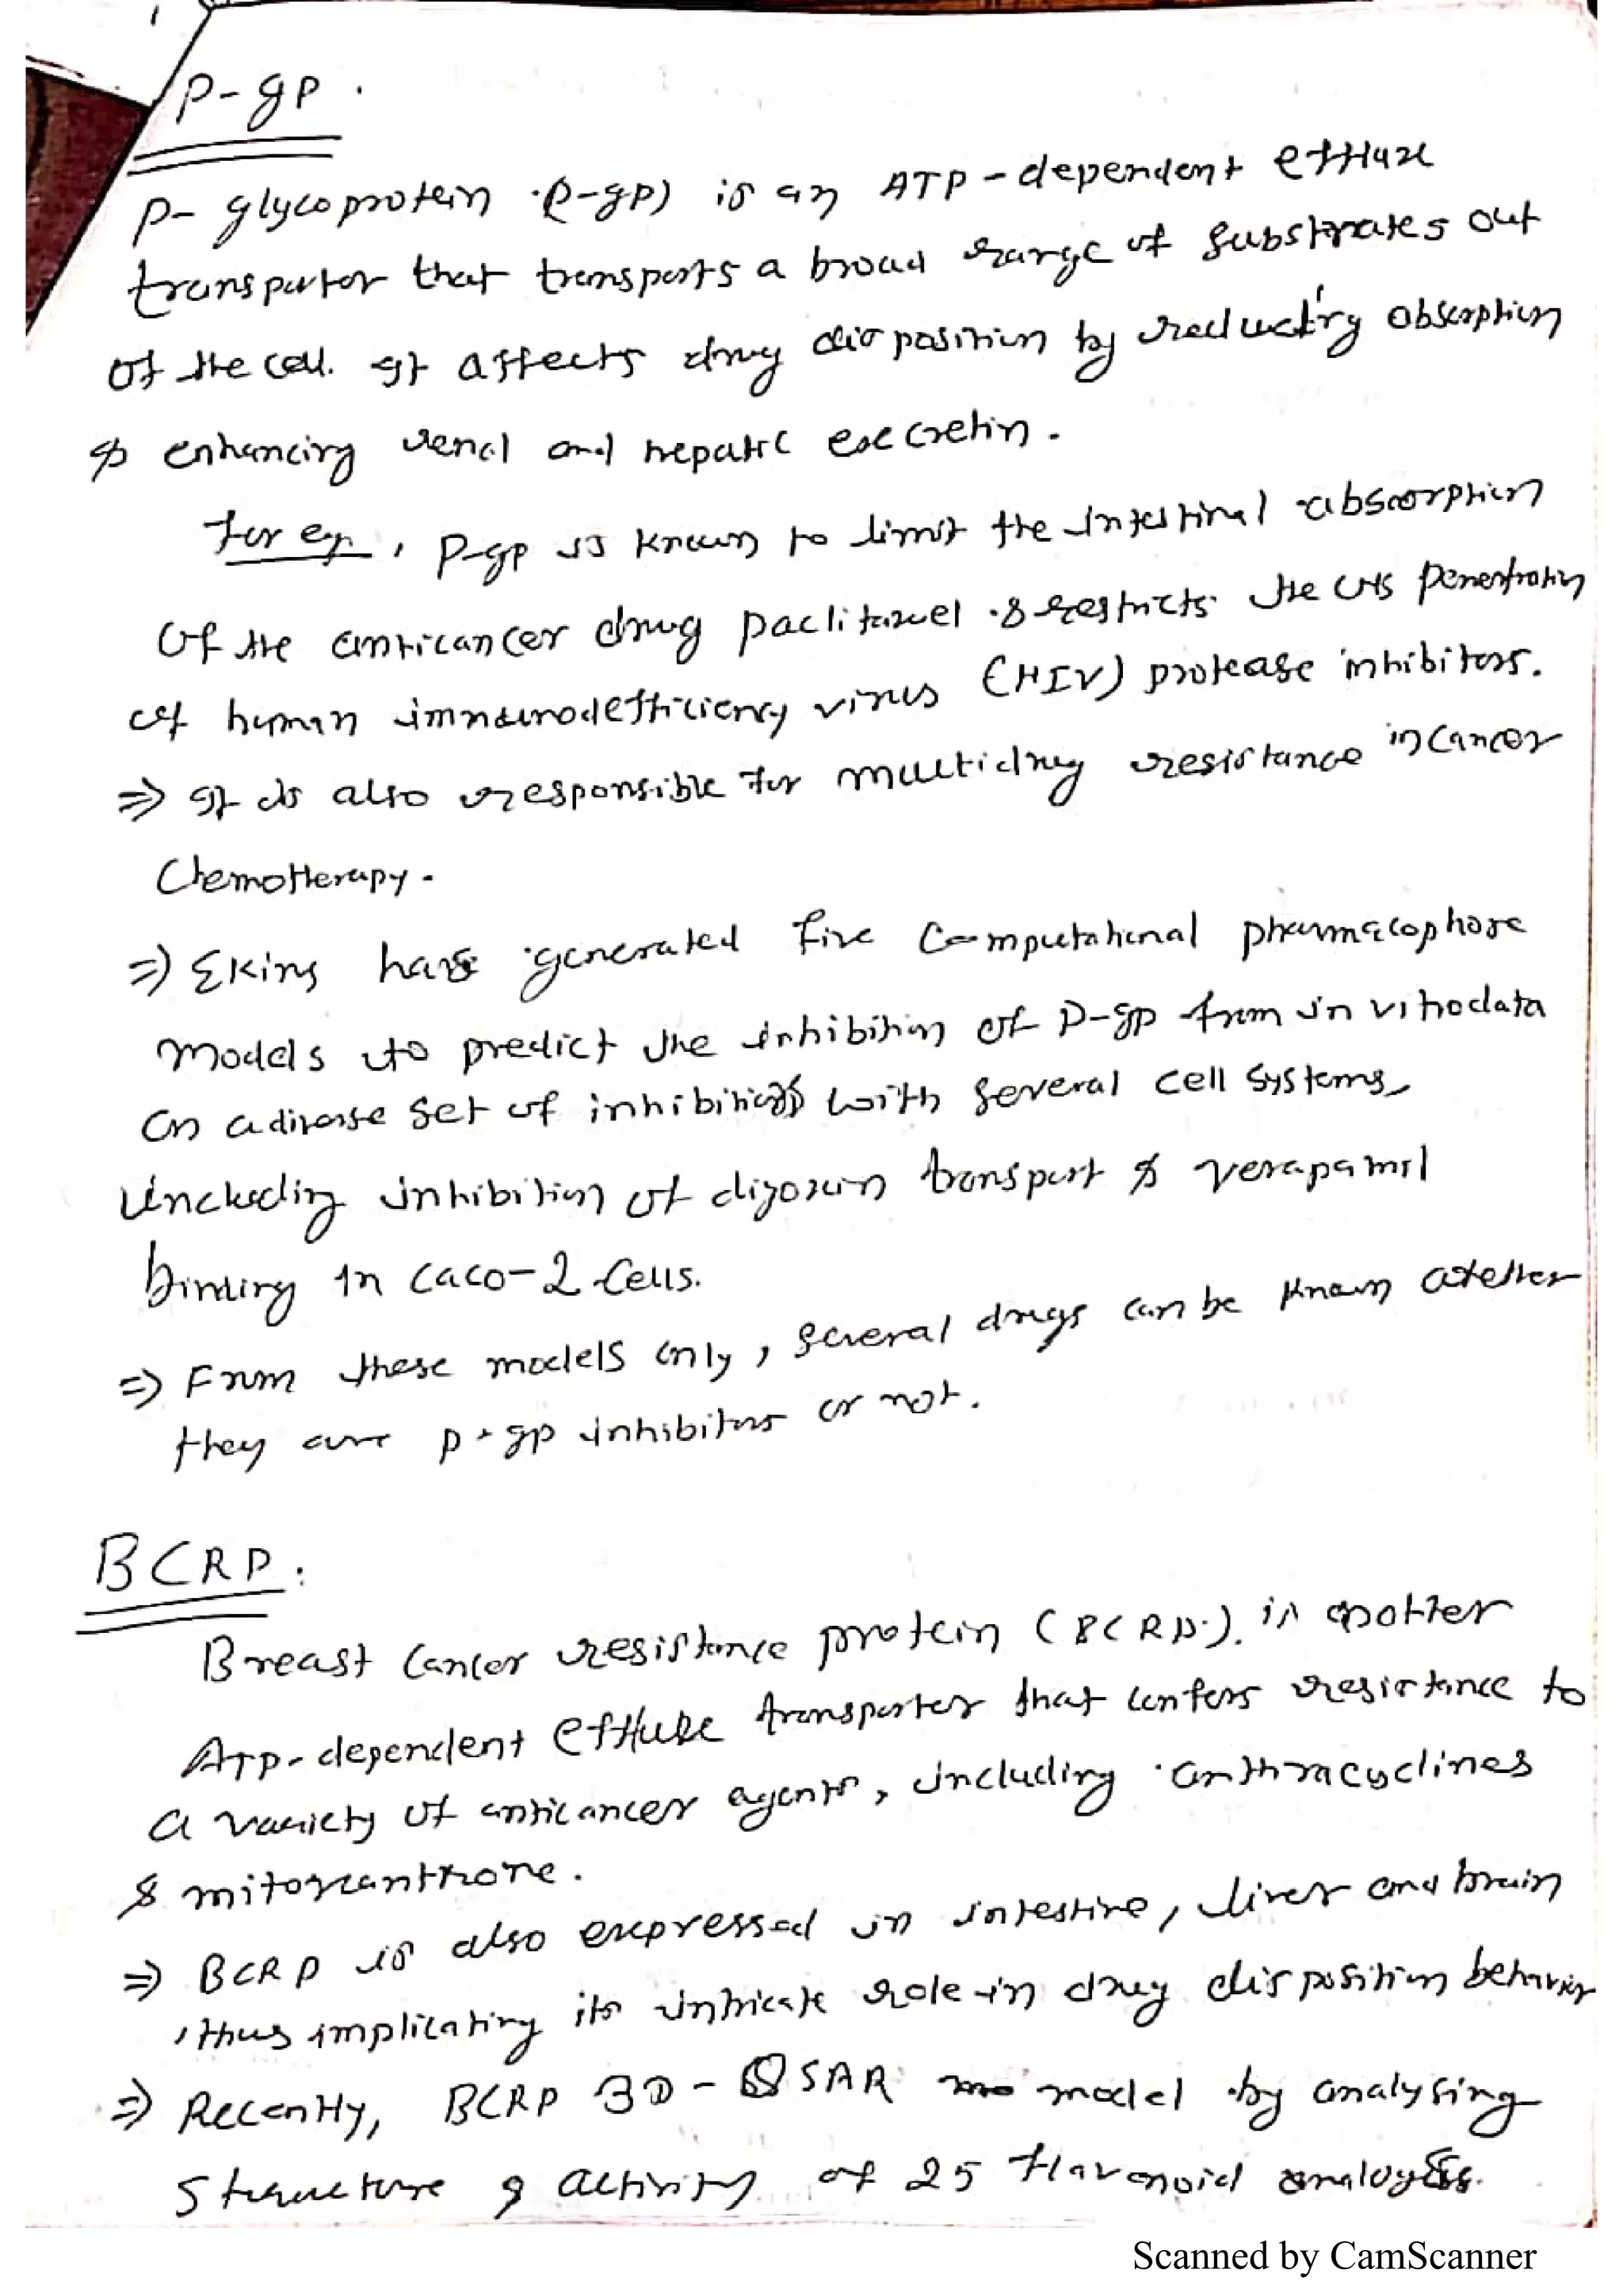 P-gP.
P- glycoprotein (P-gP) is an ATP-dependent efflux
transportor that transports a broad range of substrates out
of the cell. It affects drug disposition by reducting obsorption
& enhancing renal and hepatic excretin.
For eg, P-gp is known to limit the intestinal absorption
of the anticancer drug paclitaxel & restricts the CNS penentration
of human immunodefficiency virus (HIV) protease inhibitors.
⇒ It is also responsible for multidrug resistance in cancer
Chemotherapy.
⇒ Ekins have generated five computational pharmacophore
models to predict the inhibition of P-gp from in vitro data
on a diverse set of inhibitions with several cell systems,
including inhibition of digoxin transport & verapamil
binding in Caco-2 cells.
⇒ From these models only, several drugs can be known
they are p-gp inhibitors or not.
BCRP:
Breast Cancer resistance protein (BCRP). is another
ATP-dependent efflux transporter that confers resistance to
a variety of anticancer agents, including anthracyclines
& mitoxanthrone.
⇒ BCRP is also expressed in intestine, liver and brain
, thus implicating its intricate role in drug disposition behavior
⇒ Recently, BCRP 3D-QSAR model by analysing
structure & activity of 25 flavonoid analogs.
Scanned by CamScanner